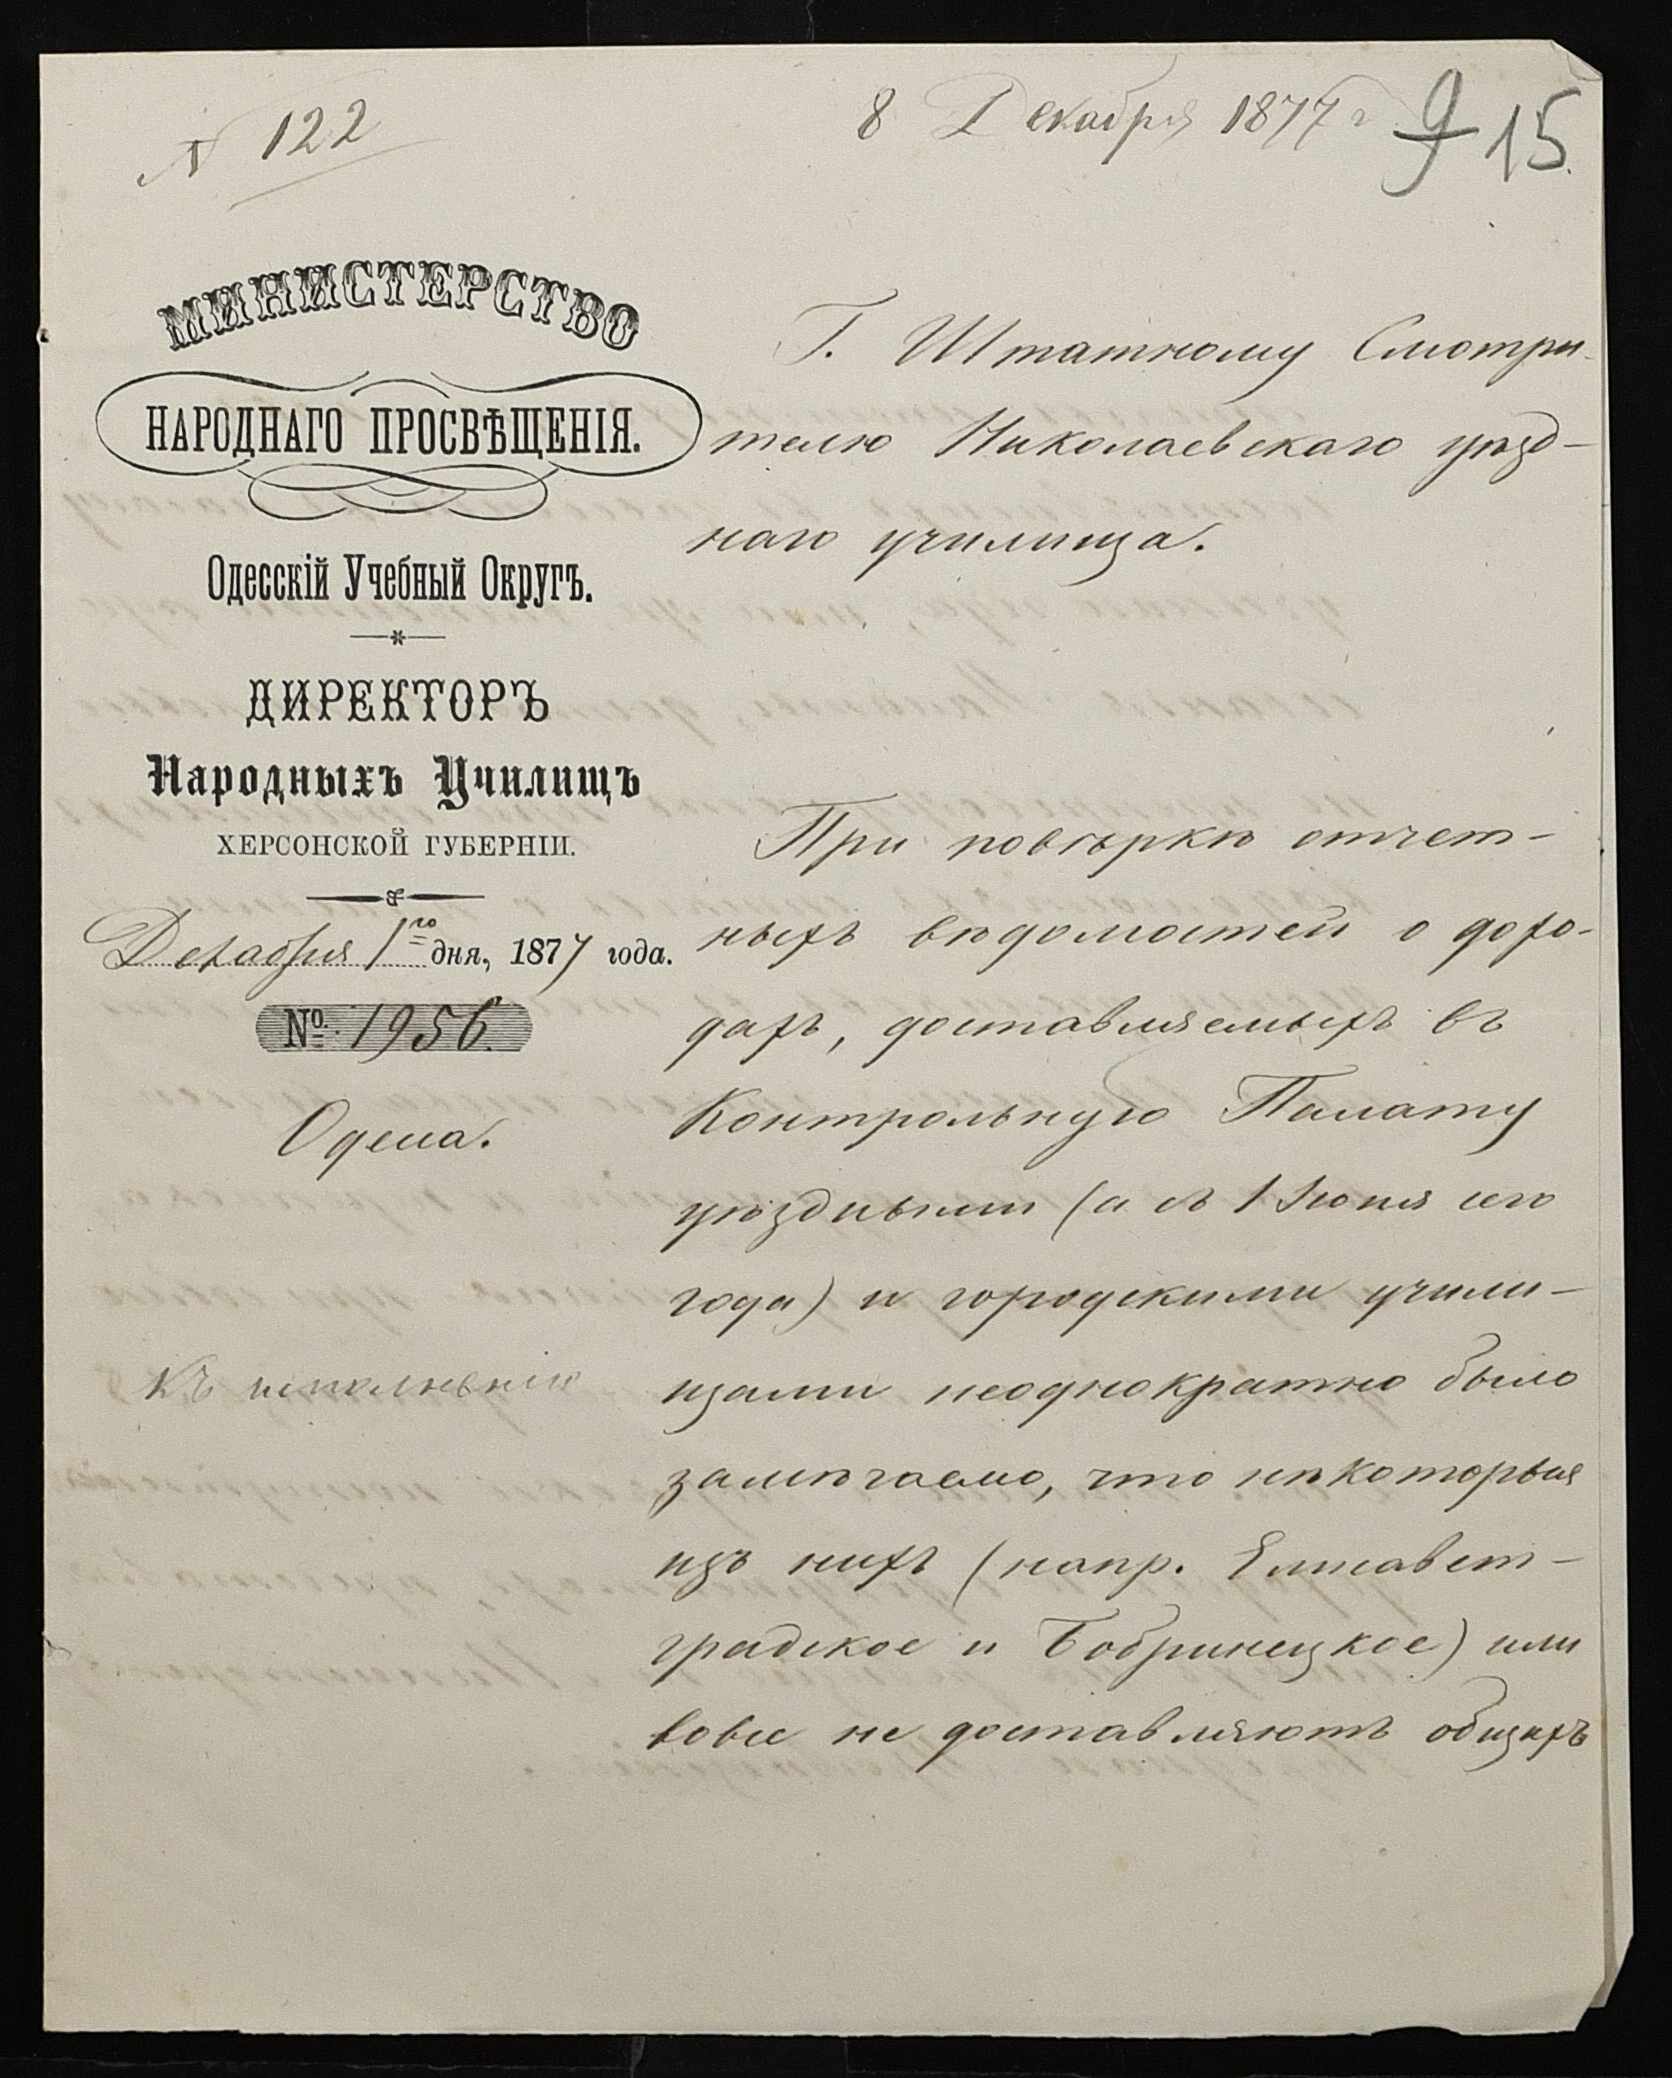 № 122
8 Декабря 1877 г
9 15.
МИНИСТЕРСТВО
НАРОДНАГО ПРОСВѢЩЕНІЯ.
Одесскій Учебный Округъ.
ДИРЕКТОРЪ
Народныхъ Училищъ
ХЕРСОНСКОЙ ГУБЕРНІИ.
Декабря 1го дня, 1877 года.
№ 1956.
Одесса.
Къ исполненію
Г. Штатному Смотри-
телю Николаевскаго уѣзд-
наго училища.
При повѣркѣ отчет-
ныхъ вѣдомостей о дохо-
дахъ, доставляемыхъ въ
Контрольную Палату
уѣздными (а съ 1 Іюля сего
года) и городскими учили-
щами неоднократно было
замѣчаемо, что нѣкоторыя
изъ нихъ (напр. Елисавет-
градское и Бобринецкое) или
вовсе не доставляютъ общихъ